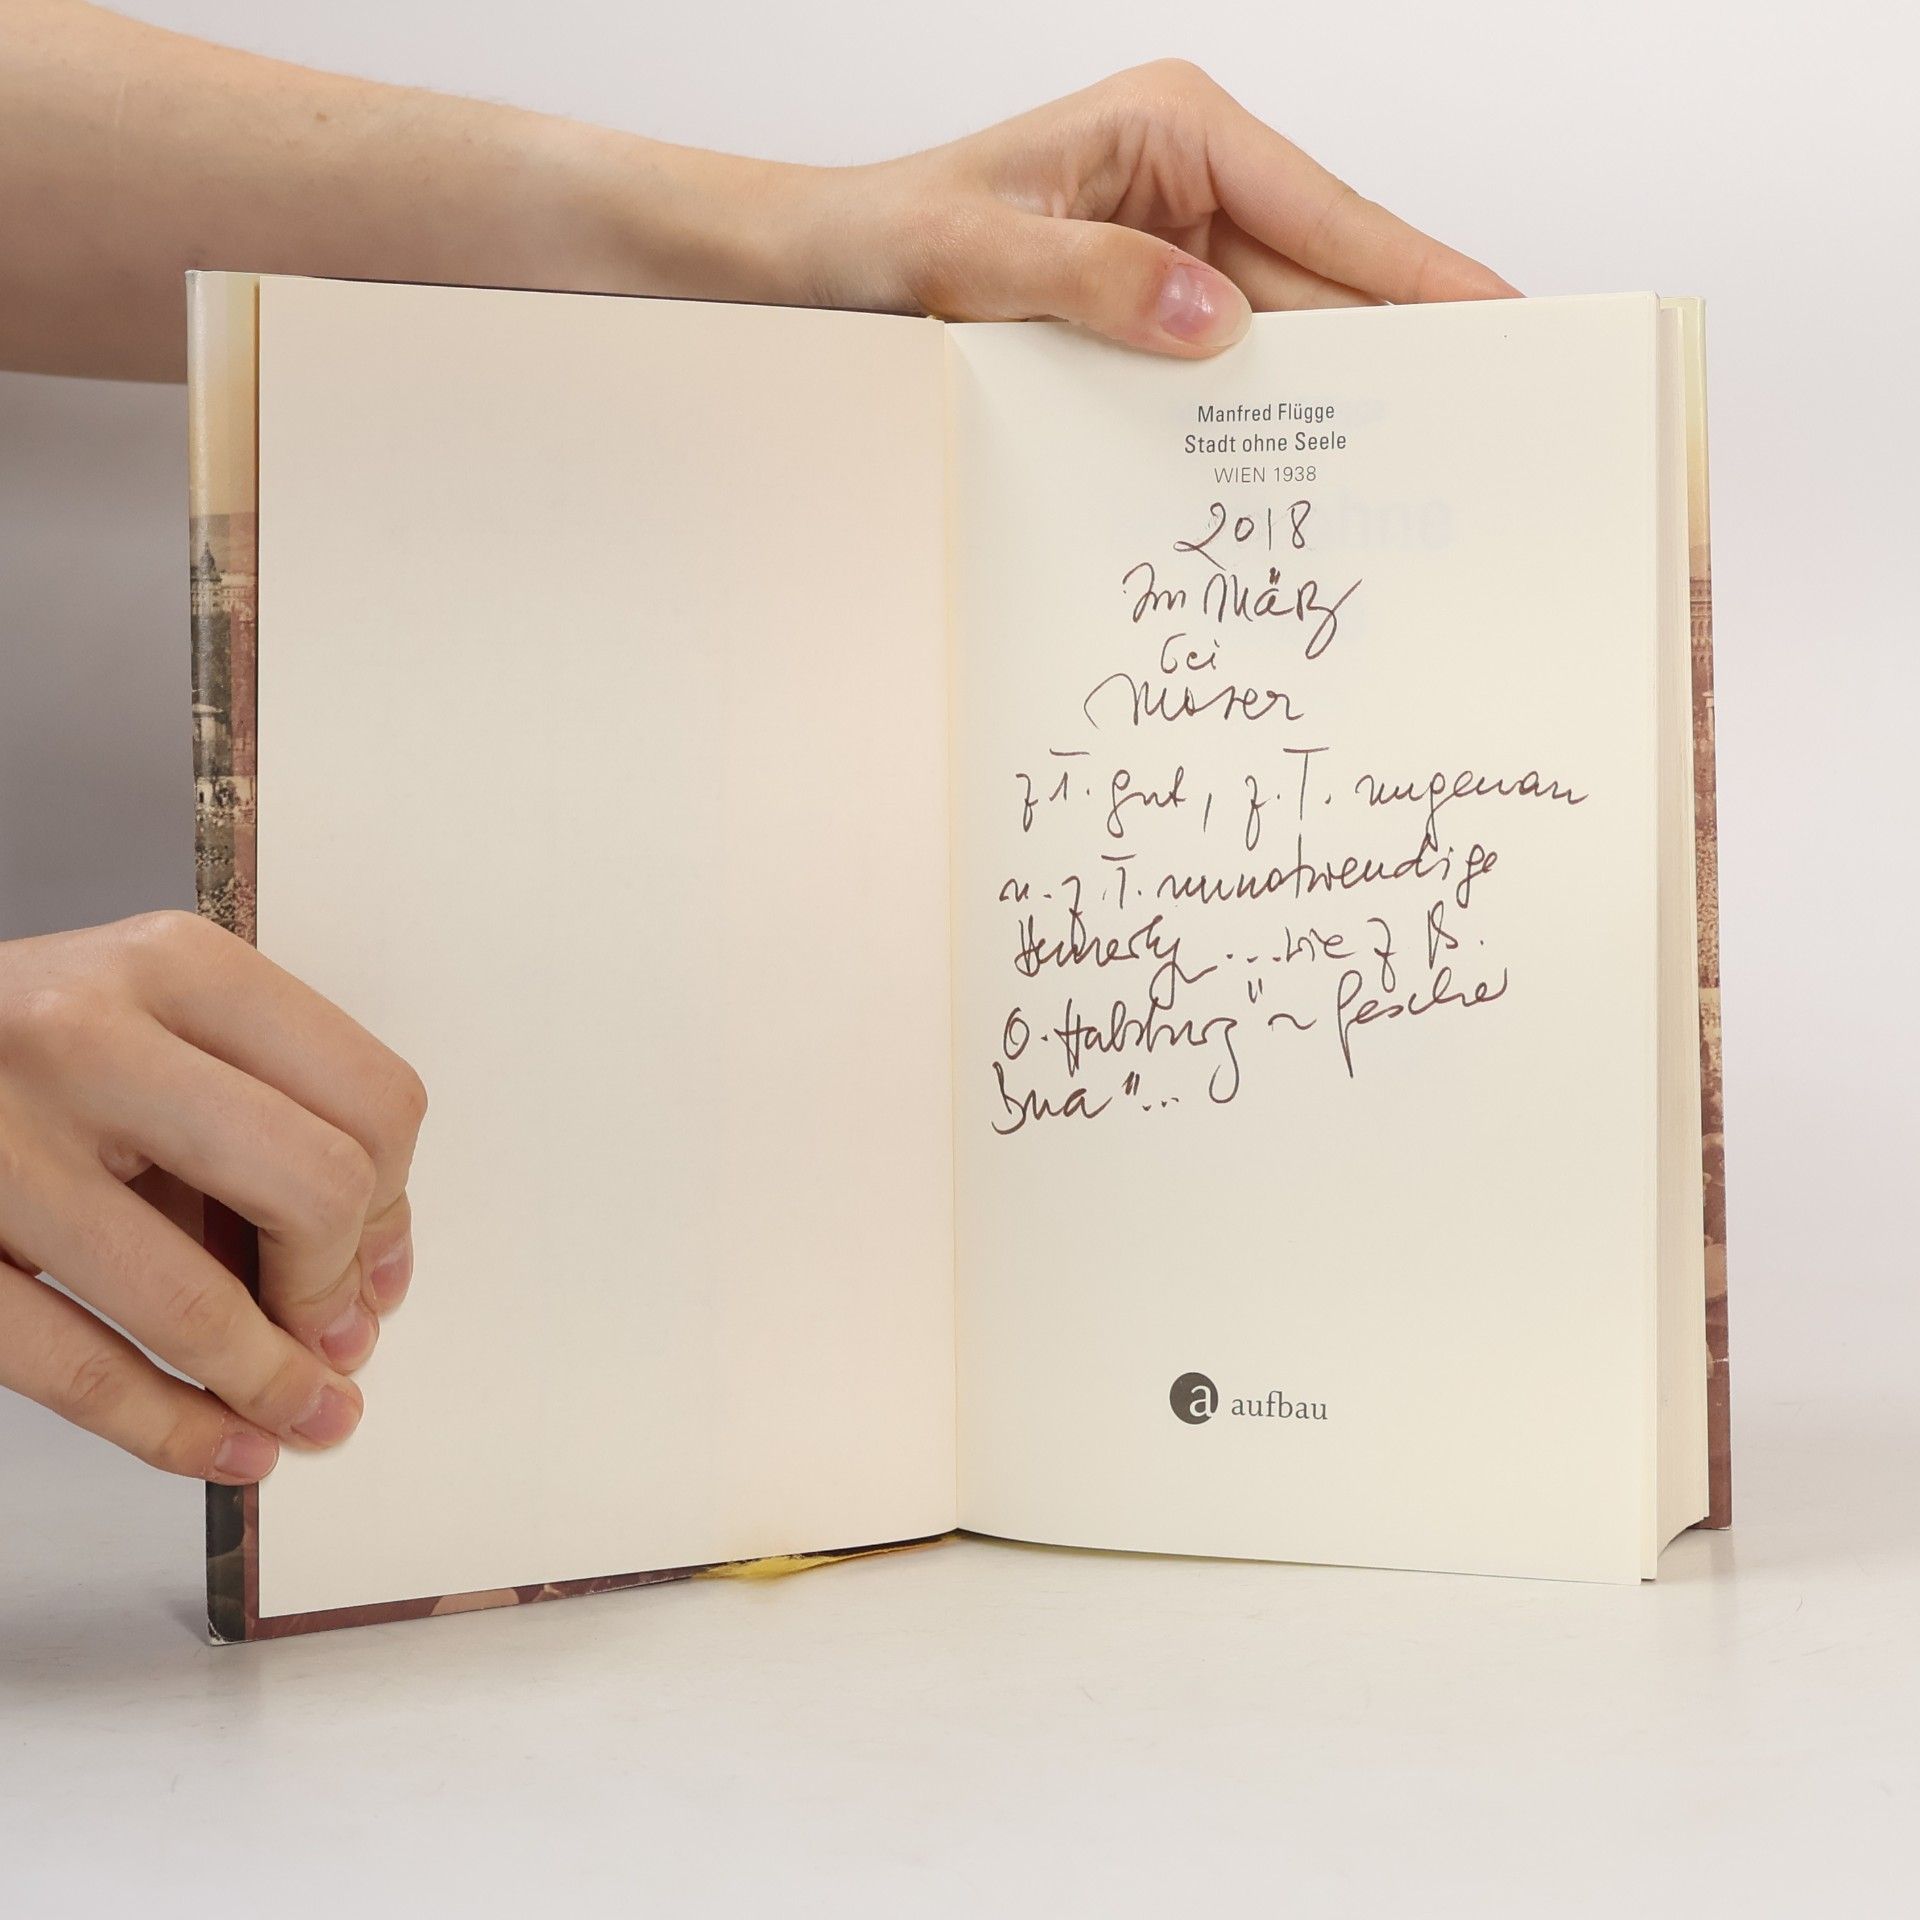 Manfred Flügge
Stadt ohne Seele
WIEN 1938
2018
Im März
bei
Moser
z T. gut, z. T. ungenau
u. z. T. unnotwendige
...wie z B.
O. Habsburg "
Bua"...
a aufbau